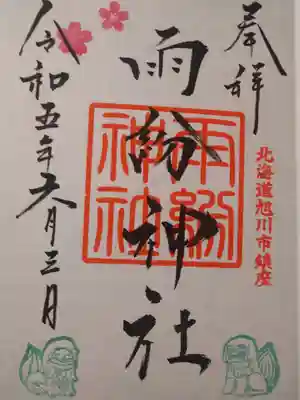 奉拝
北海道旭川市鎮座
雨紛神社
雨紛
神社
令和五年六月三日